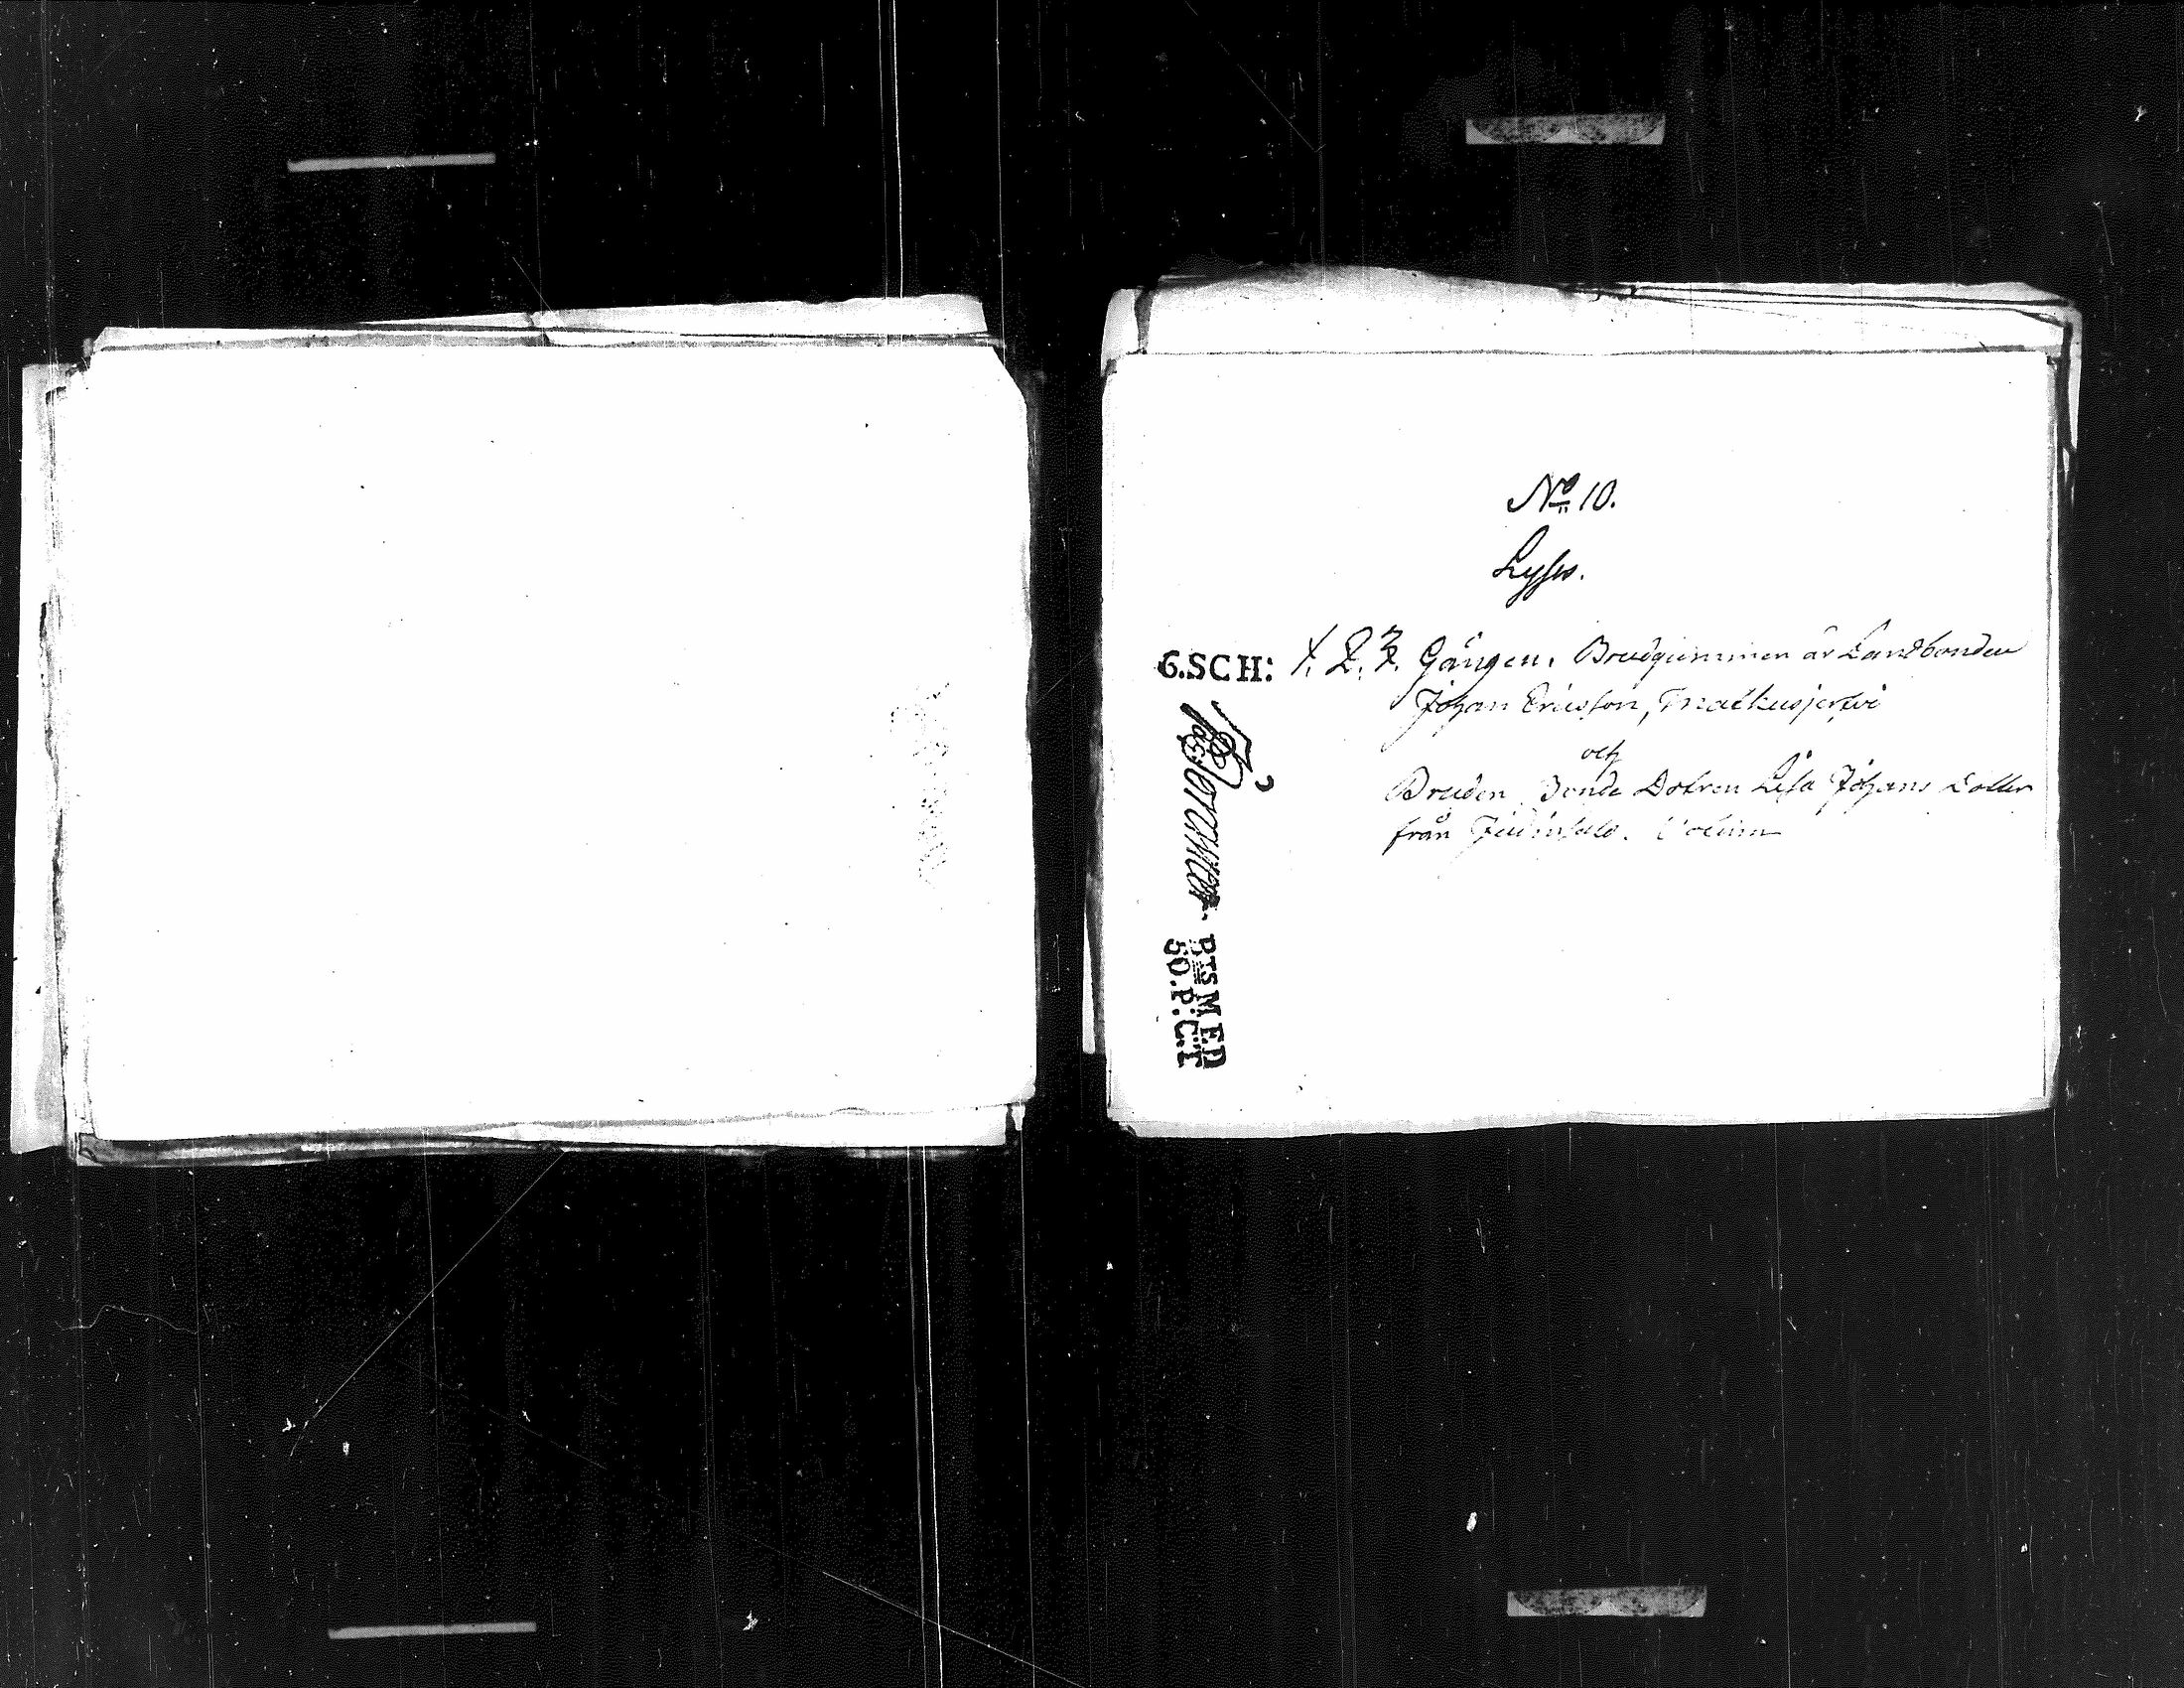 No 10.
Lyses.
6.SCH:
1. 2. 3. Gången. Brudgummen är Landbonden
Johan Ericsson, Matkusjerfvi
och
Bruden Bonde Dotren Lisa Johans Dotter
från
BTSMED
50.P:CT